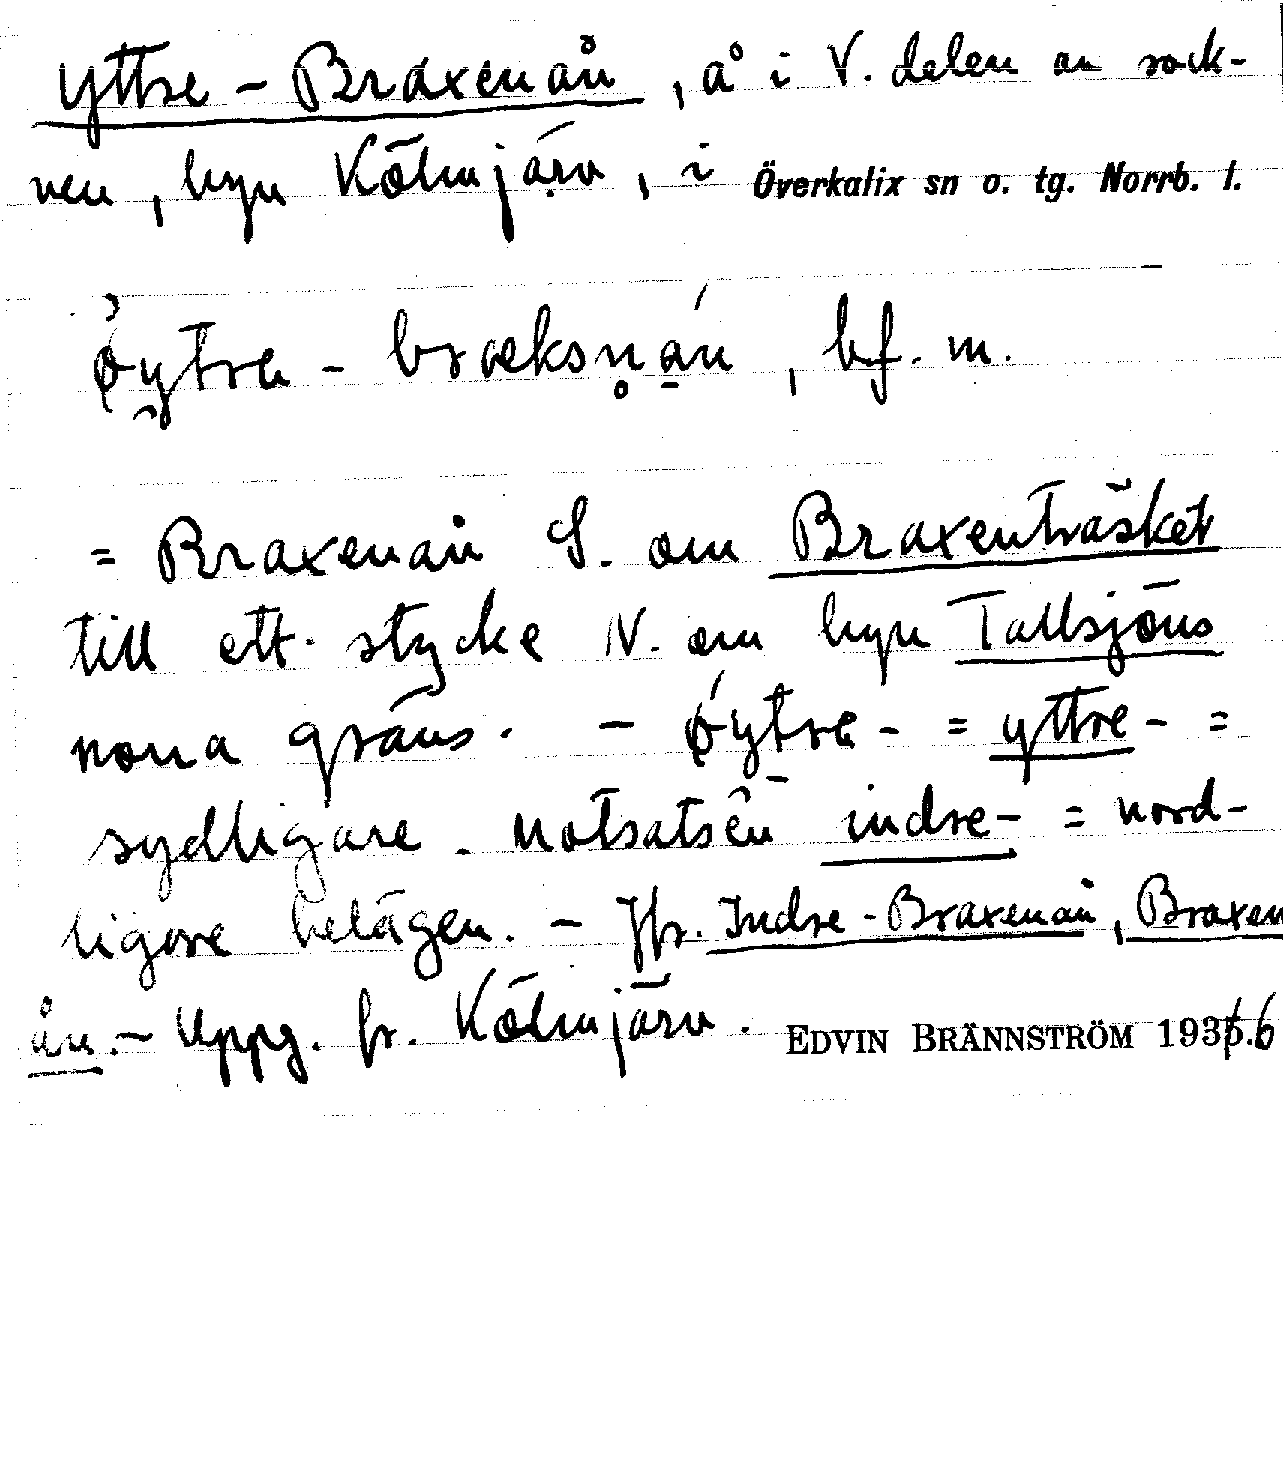 Yttre-Braxenån, å i V. delen av sock-
nen, byn Kölmjärv, i Överkalix sn o. tg. Norrb. l.
øytre-bræksn̥a̱n, bf. m.
= Braxenån S. om Braxenträsket
till ett stycke N. om byn Tallsjöns
norra gräns. - øytre- = yttre- =
sydligare. Motsatsen indre- = nord-
ligare belägen. - Jfr. Indre-Braxenån, Braxen
ån. - Uppg. fr. Kölmjärv. EDVIN BRÄNNSTRÖM 1936